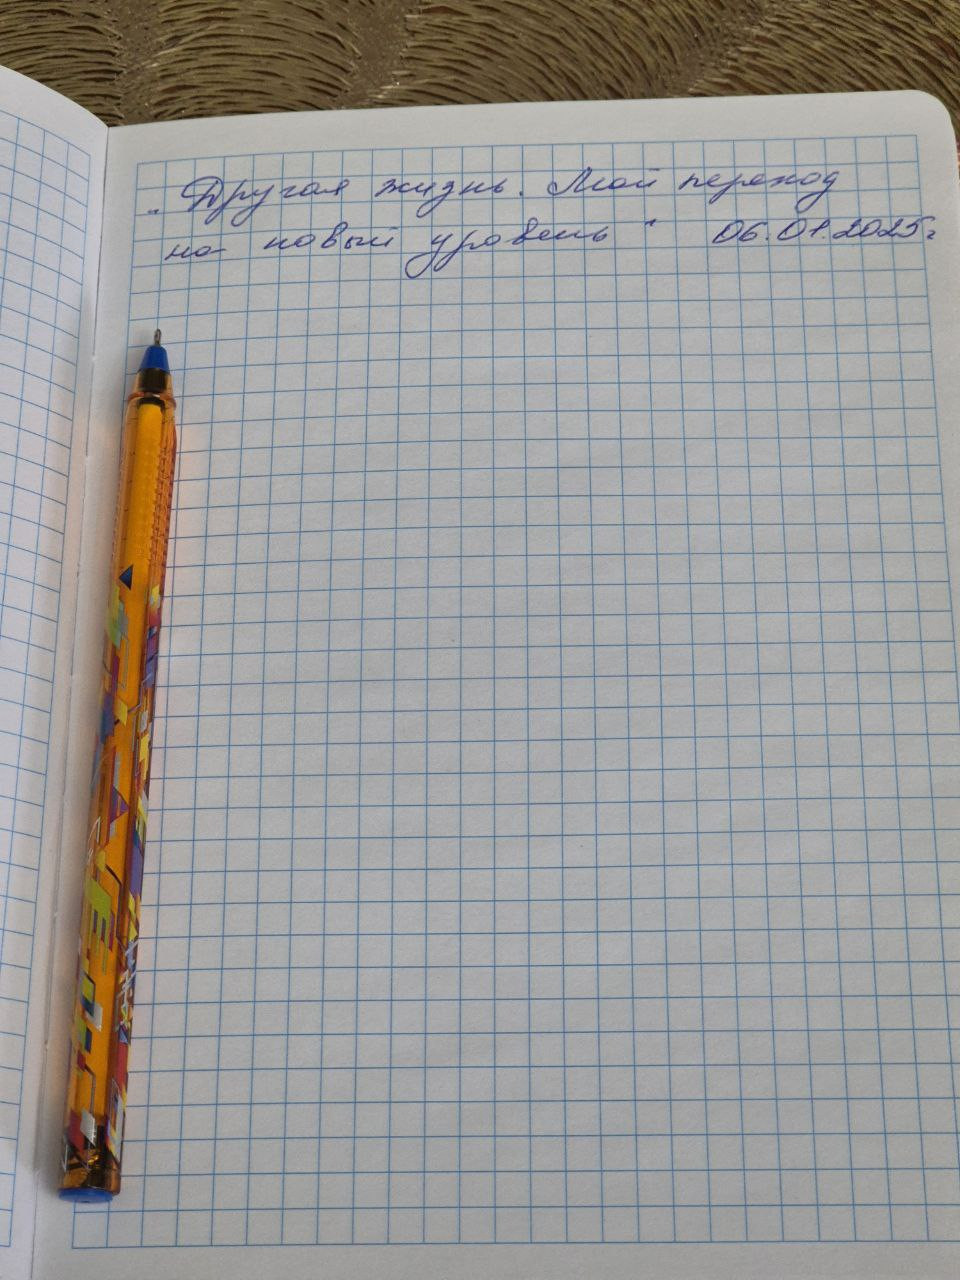 „Другая жизнь. Мой переход
на новый уровень“ 06.01.2025г